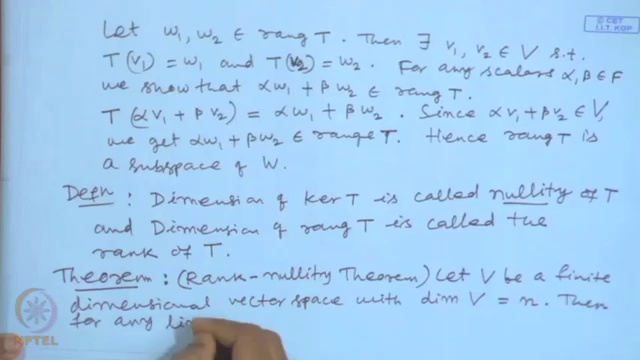 © CET
I.I.T. KGP
Let w₁, w₂ ∈ rang T. Then ∃ v₁, v₂ ∈ V s.t.
T(v₁) = w₁ and T(v₂) = w₂. For any scalars α, β ∈ F
we show that αw₁ + βw₂ ∈ rang T.
T(αv₁ + βv₂) = αw₁ + βw₂. Since αv₁ + βv₂ ∈ V,
we get αw₁ + βw₂ ∈ range T. Hence rang T is
a subspace of W.
Defn : Dimension of ker T is called nullity of T
and Dimension of rang T is called the
rank of T.
Theorem : (Rank-nullity Theorem) Let V be a finite
dimensional vector space with dim V = n. Then
for any lin
NPTEL